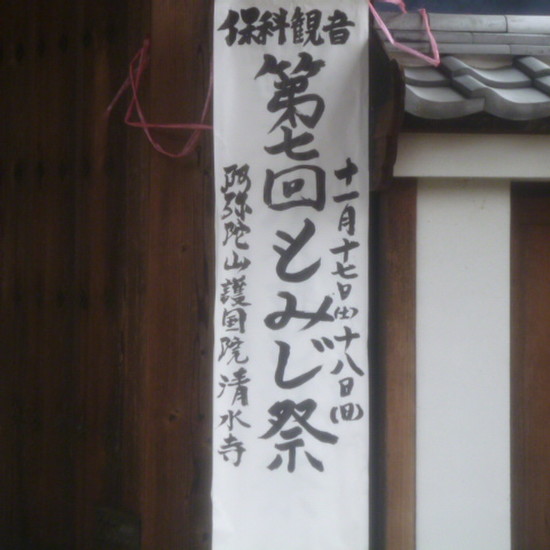 保科観音
十一月十七日(土)十八日(日)
第七回もみじ祭
阿弥陀山護国院清水寺